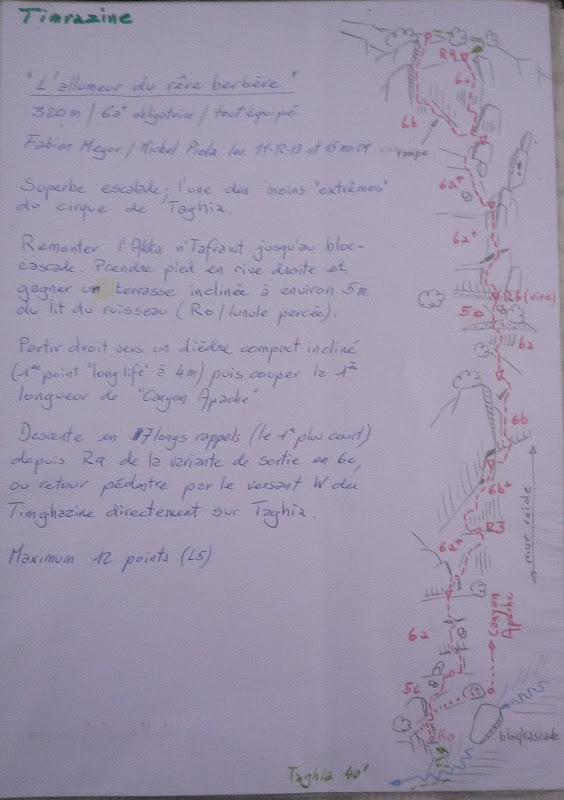 Timrazine
"L'allumeur du rêve berbère"
320 m / 6a+ obligatoire / tout équipé
Fabian Meyer / Michel Piola les 11-12-13 et 15
Superbe escalade, l'une des moins "extrêmes"
du cirque de Taghia.
Remonter l'Akka n'Tafrawt jusqu'au bloc-
cascade. Prendre pied en rive droite et
gagner un terrasse inclinée à environ 5m
du lit du ruisseau (R0 / lunule percée).
Partir droit vers un dièdre compact incliné
(1er point "long life" à 4m) puis couper la 1ère
longueur de "Canyon Apache".
Descente en 7 longs rappels (le 1er plus court)
depuis R9 de la variante de sortie en 6c,
ou retour pédestre par le versant W du
Timghazine directement sur Taghia.
Maximum 12 points (L5)
R9
6b
rampe
6a+
6a+
R6 (vire)
5c
6a
6b
6b+
R3
mur raide
6a+
6a
Canyon
Apache
5c
R0
bloc/cascade
Taghia 40'